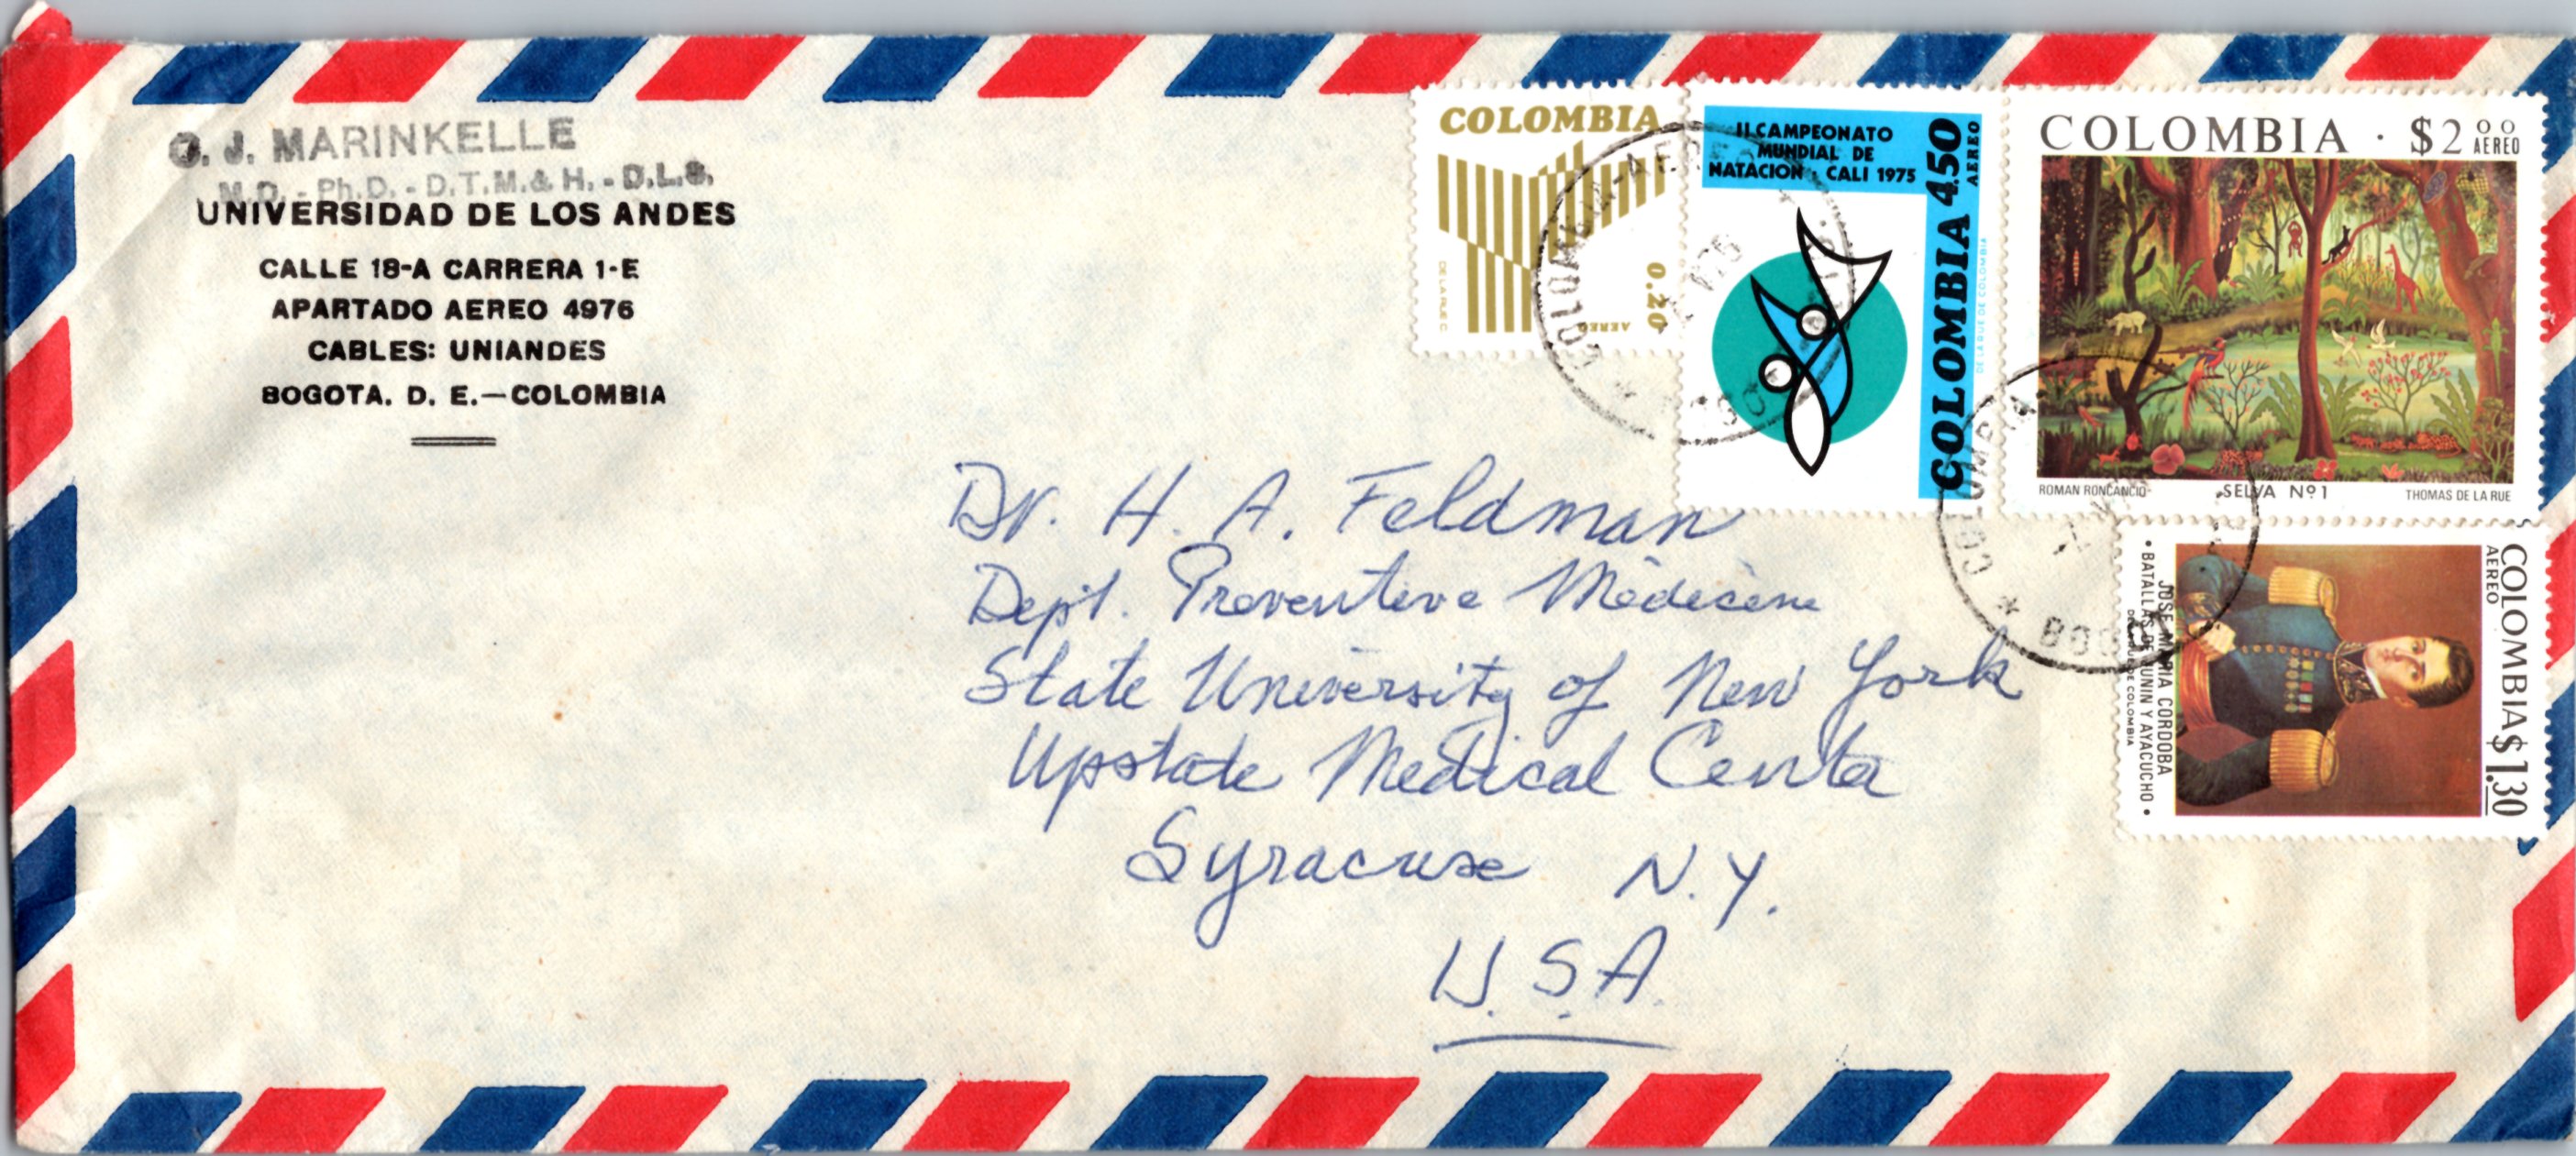 C. J. MARINKELLE
M.D. - Ph.D. - D.T.M.& H. - D.L.S.
UNIVERSIDAD DE LOS ANDES
CALLE 18-A CARRERA 1-E
APARTADO AEREO 4976
CABLES: UNIANDES
BOGOTA. D. E.—COLOMBIA
COLOMBIA
0.20
AEREO
DE LA RUE C
II CAMPEONATO
MUNDIAL DE
NATACION - CALI 1975
COLOMBIA 4.50
AEREO
DE LA RUE DE COLOMBIA
COLOMBIA · $2 00
AEREO
ROMAN RONCANCIO SELVA Nº1 THOMAS DE LA RUE
COLOMBIA $1.30
AEREO
JOSE MARIA CORDOBA
• BATALLAS DE JUNIN Y AYACUCHO •
DE LA RUE DE COLOMBIA
Dr. H. A. Feldman
Dept. Preventive Medicine
State University of New York
Upstate Medical Center
Syracuse N.Y.
U.S.A.